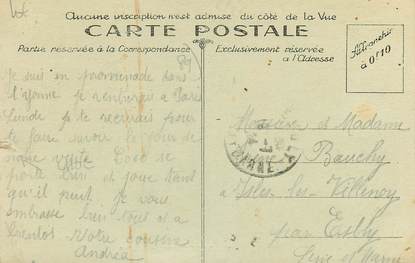 Aucune inscription n'est admise du côté de la Vue
CARTE POSTALE
Partie réservée à la Correspondance
Exclusivement réservée
à l'Adresse
Affranchir
à 0f10
Je suis en promenade dans
l'Yonne je rentrerai à Paris
lundi je te recevrais pour
te faire savoir le jour de
VISITE
porte bien et joue tant
qu'il peut. Je vous
embrasse bien tous et à
bientôt Votre cousine
Andréa
Monsieur et Madame
Bauchy
à Isles les Villenoy
par Esbly
Seine et Marne